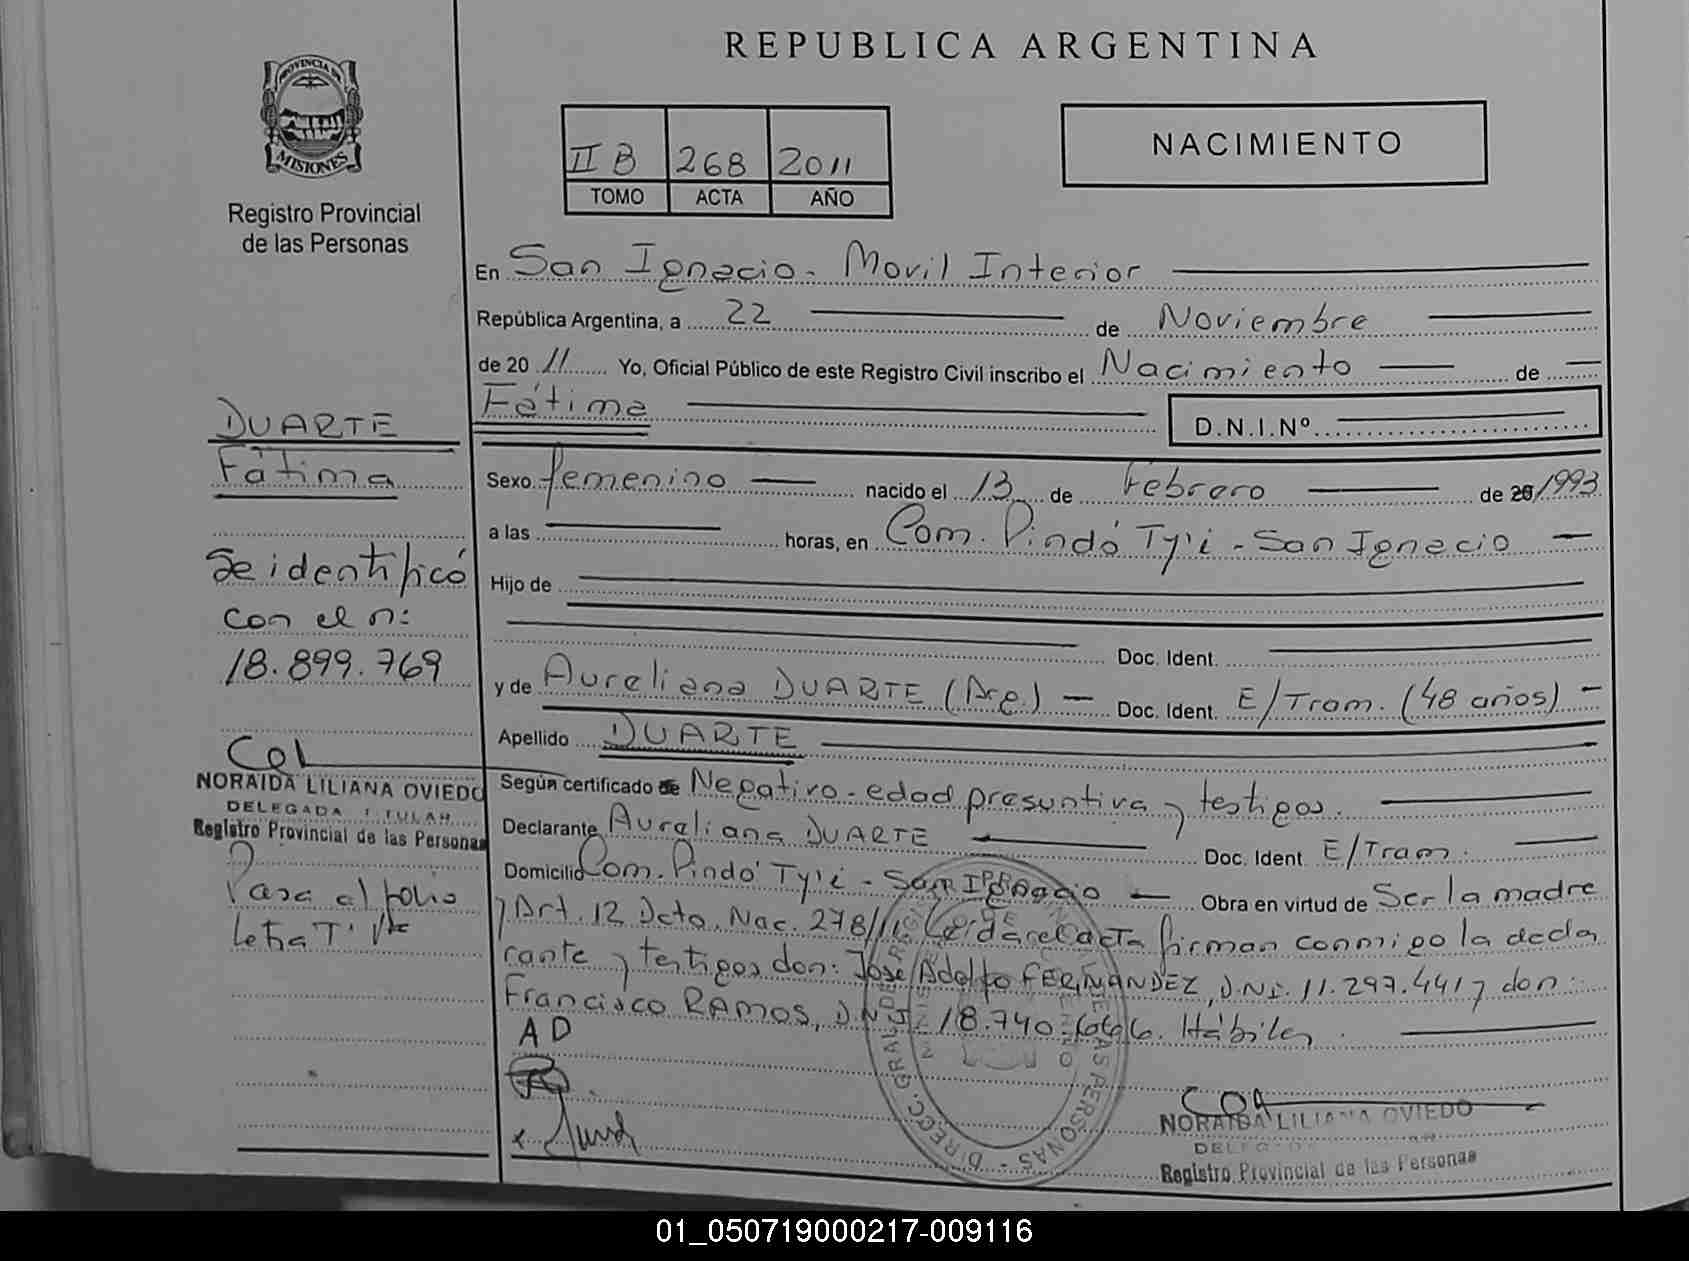 REPUBLICA ARGENTINA
PROVINCIA DE
MISIONES
Registro Provincial
de las Personas
II B 268 2011
TOMO ACTA AÑO
NACIMIENTO
En San Ignacio - Movil Interior
República Argentina, a 22 de Noviembre
de 20 11 Yo, Oficial Público de este Registro Civil inscribo el Nacimiento de
Fátima D.N.I.Nº
Sexo femenino nacido el 13 de Febrero de 20 1993
a las horas, en Com. Pindó Ty'i - San Ignacio
Hijo de
Doc. Ident.
y de Aureliana DUARTE (Arg.) Doc. Ident. E/Tram. (48 años)
Apellido DUARTE
Según certificado de Negativo - edad presuntiva y testigos.
Declarante Aureliana DUARTE Doc. Ident. E/Tram.
Domicilio Com. Pindó Ty'i - San Ignacio Obra en virtud de Ser la madre
y Art. 12 Dcto. Nac. 278/11. Leída el acta firman conmigo la decla
rante y testigos don: José Adolfo FERNANDEZ, D.N.I. 11.297.441 y don:
Francisco RAMOS, D.N.I. 18.740.666. Hábiles
AD
NORAIDA LILIANA OVIEDO
DELEGADA
Registro Provincial de las Personas
DUARTE
Fátima
Se identificó
con el n:
18.899.769
NORAIDA LILIANA OVIEDO
DELEGADA TITULAR
Registro Provincial de las Personas
Pasa al folio
letra
01_050719000217-009116